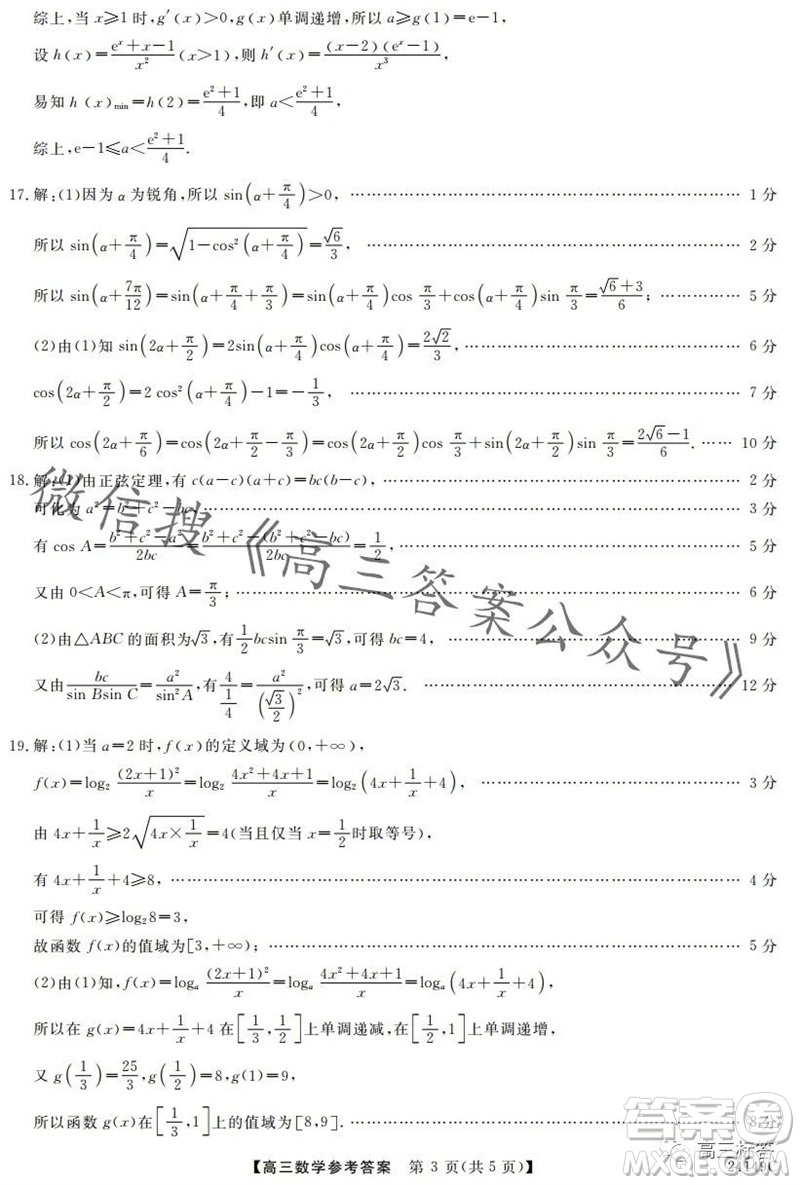 综上,当 x≥1 时,g′(x)>0,g(x)单调递增,所以 a≥g(1)=e−1,
设 h(x)=(eˣ+x−1)/x²(x>1),则 h′(x)=(x−2)(eˣ−1)/x³,
易知 h(x)min=h(2)=(e²+1)/4,即 a<(e²+1)/4,
综上,e−1≤a<(e²+1)/4.
17.解:(1)因为 α 为锐角,所以 sin(α+π/4)>0, …… 1 分
所以 sin(α+π/4)=√(1−cos²(α+π/4))=√6/3, …… 2 分
所以 sin(α+7π/12)=sin(α+π/4+π/3)=sin(α+π/4)cos π/3+cos(α+π/4)sin π/3=(√6+3)/6; …… 5 分
(2)由(1)知 sin(2α+π/2)=2sin(α+π/4)cos(α+π/4)=2√2/3, …… 6 分
cos(2α+π/2)=2cos²(α+π/4)−1=−1/3, …… 7 分
所以 cos(2α+π/6)=cos(2α+π/2−π/3)=cos(2α+π/2)cos π/3+sin(2α+π/2)sin π/3=(2√6−1)/6. …… 10 分
18.解:(1)由正弦定理,有 c(a−c)(a+c)=bc(b−c), …… 2 分
可化为 a²=b²+c²−bc, …… 3 分
有 cos A=(b²+c²−a²)/2bc=(b²+c²−(b²+c²−bc))/2bc=1/2, …… 5 分
又由 0<A<π,可得 A=π/3; …… 6 分
(2)由△ABC 的面积为√3,有 1/2 bcsin π/3=√3,可得 bc=4, …… 9 分
又由 bc/(sin Bsin C)=a²/sin²A,有 4/(1/4)=a²/(√3/2)²,可得 a=2√3. …… 12 分
19.解:(1)当 a=2 时,f(x)的定义域为(0,+∞),
f(x)=log₂ (2x+1)²/x=log₂ (4x²+4x+1)/x=log₂(4x+1/x+4), …… 3 分
由 4x+1/x≥2√(4x×1/x)=4(当且仅当 x=1/2时取等号),
有 4x+1/x+4≥8, …… 4 分
可得 f(x)≥log₂8=3,
故函数 f(x)的值域为[3,+∞); …… 5 分
(2)由(1)知,f(x)=logₐ (2x+1)²/x=logₐ (4x²+4x+1)/x=logₐ(4x+1/x+4),
所以在 g(x)=4x+1/x+4 在[1/3,1/2]上单调递减,在[1/2,1]上单调递增,
又 g(1/3)=25/3,g(1/2)=8,g(1)=9,
所以函数 g(x)在[1/3,1]上的值域为[8,9]. …… 8 分
【高三数学参考答案 第 3 页(共 5 页)】
微信搜《高三答案公众号》
答案圈
高三标答
MXQE.COM